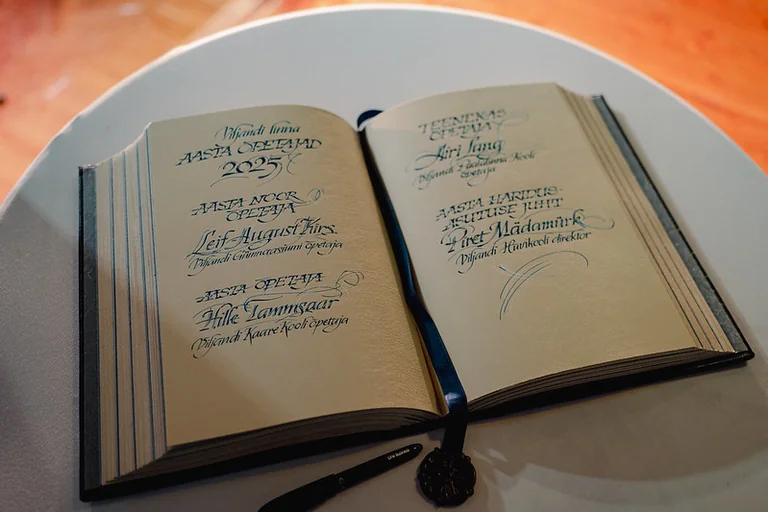 Viljandi linna
AASTA ÕPETAJAD
2025
AASTA NOOR
ÕPETAJA
Leif August Kirs
Viljandi Gümnaasiumi õpetaja
AASTA ÕPETAJA
Hille Tammsaar
Viljandi Kaare Kooli õpetaja
TEENEKAS
ÕPETAJA
Airi Lang
Viljandi Paalalinna Kooli
õpetaja
AASTA HARIDUS-
ASUTUSE JUHT
Piret Mädamürk
Viljandi Huvikooli direktor